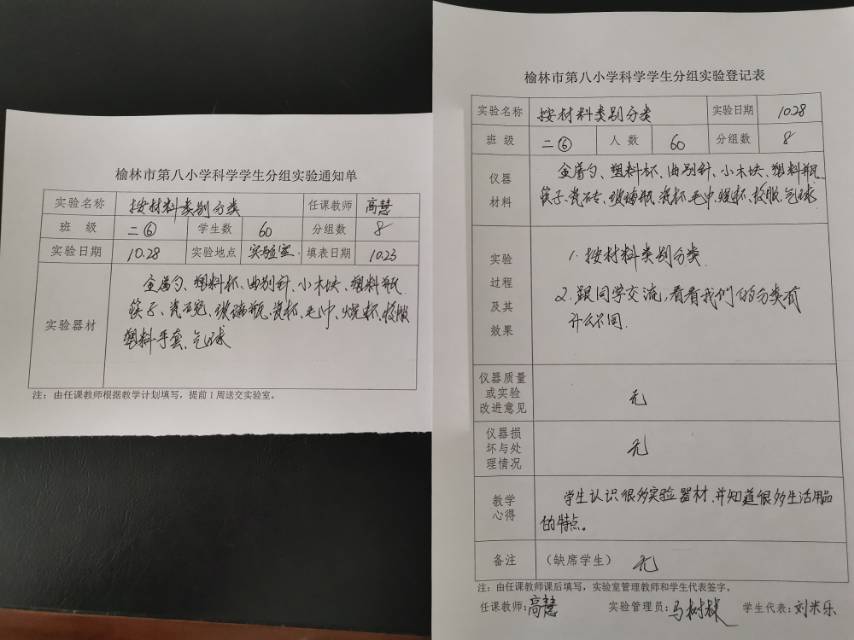 榆林市第八小学科学学生分组实验通知单
实验名称 按材料类别分类 任课教师 高慧
班 级 二⑥ 学生数 60 分组数 8
实验日期 10.28 实验地点 实验室 填表日期 10.23
实验器材
金属勺、塑料杯、曲别针、小木块、塑料瓶
筷子、瓷砖、玻璃瓶、瓷杯、毛巾、烧杯、校服
塑料手套、气球
注:由任课教师根据教学计划填写,提前1周送交实验室。
榆林市第八小学科学学生分组实验登记表
实验名称 按材料类别分类 实验日期 10.28
班 级 二⑥ 人 数 60 分组数 8
仪器
材料
金属勺、塑料杯、曲别针、小木块、塑料瓶
筷子、瓷砖、玻璃瓶、瓷杯、毛巾、烧杯、校服、气球
实验
过程
及其
效果
1.按材料类别分类.
2.跟同学交流,看看我们的分类有
什么不同.
仪器质量
或实验
改进意见
无
仪器损
坏与处
理情况
无
教学
心得
学生认识很多实验器材,并知道很多生活用品
的特点。
备注 (缺席学生) 无
注:由任课教师课后填写,实验室管理教师和学生代表签字。
任课教师:高慧 实验管理员:马树 学生代表:刘米乐